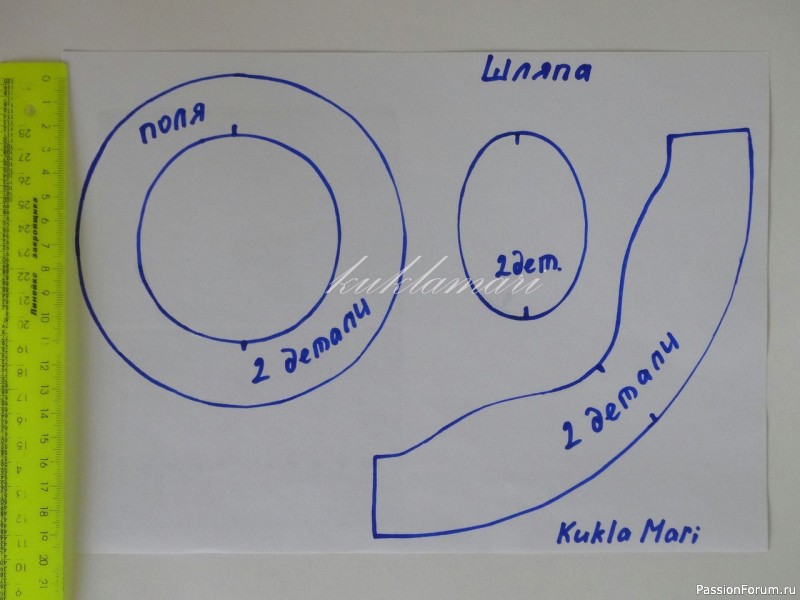 Шляпа
поля
2 детали
2 дет.
2 детали
Kukla Mari
kuklamari
Линейка закройщика
0
1
2
3
4
5
6
7
8
9
10
11
12
13
14
15
16
17
18
19
20
21
28
27
26
25
24
23
22
21
20
19
18
17
16
15
14
13
12
11
10
9
PassionForum.ru